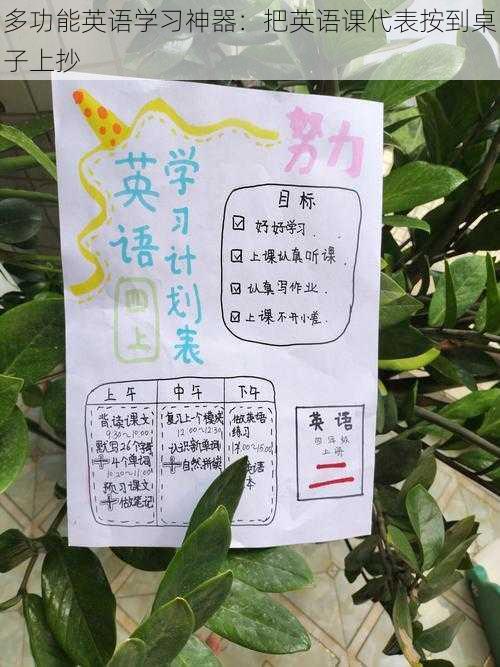 多功能英语学习神器：把英语课代表按到桌
子上抄
努力
英语
学习计划表
四上
目标
好好学习.
上课认真听课.
认真写作业.
上课不开小差.
上午
背读课文
9:30~10:00
默写26个字母
+4个单词
10:20~11:00
预习课文
+做笔记
中午
复习上一个模块
12:00~12:30
认识新单词
+自然拼读
下午
做英语
练习
英语
四年级
上册